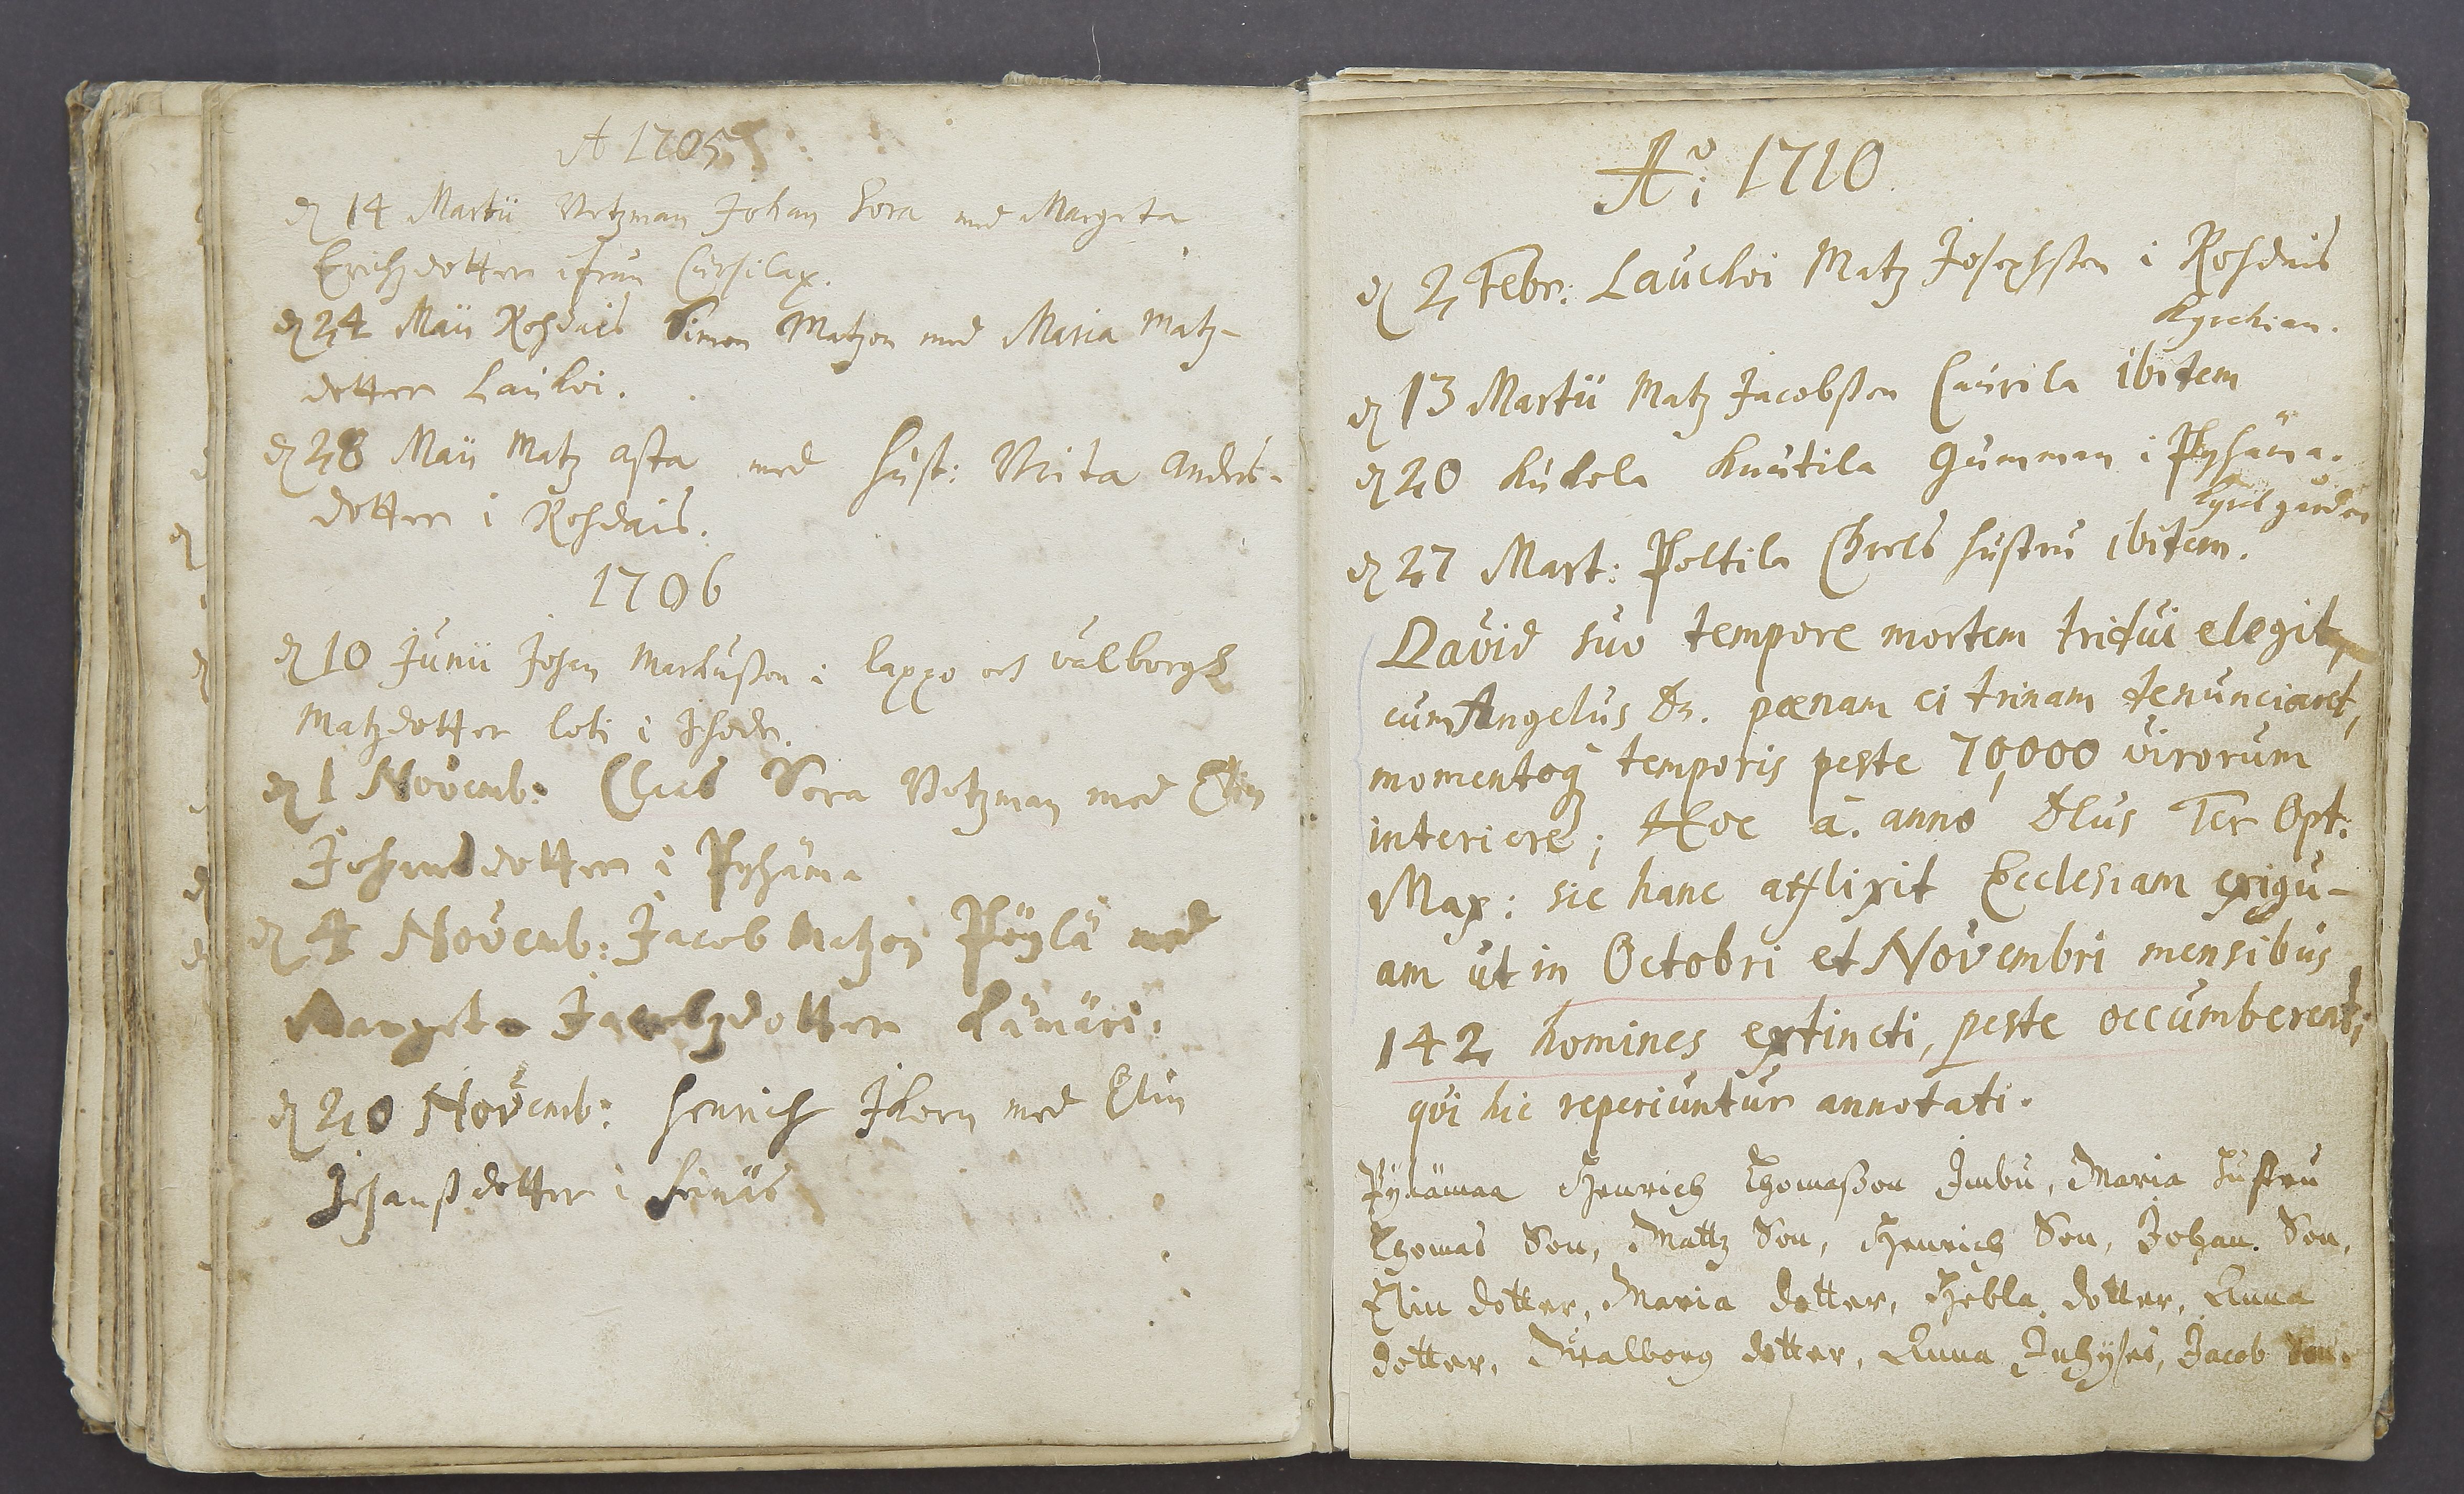 A 1705
d 14 Martii Votzman Johan Sora med Margeta
Erichzdotter ifrån Cursilax.
d 24 Maii Rohdais Simon Matzon med Maria Matz-
dotter Laukoi.
d 28 Maii Matz asta med hust: Brita Anders-
dotter i Rohdais.
1706
d 10 Junii Johan Markußon i lappo och Valborgh
Matzdotter loti i Ihode.
d 1 Novemb: Clas Sora Votzman med Elin
Johansdotter i Pyhäma
d 4 Novemb: Jacob Matzon Pöylä med
Margeta Jacobzdotter Kämäri.
d 20 Novemb: Henrich Ikorn med Elin
Johanßdotter i
Ao: 1710
d 2 Febr: Lauckoi Matz Josephson i Rohdais
kyrckian.
d 13 Martii Matz Jacobßon Caurila ibidem
d 20 Kukola Knutila Gumman i Pyhäma.
kyrckgården
d 27 Mart: Poltila Chrels hustru ibidem.
David suo tempore mortem tridui elegit,
cum Angelus Dn. poenam ei trinam denunciaret,
momentoq temporis peste 70,000 virorum
interiere; Hoc a. anno Deus Ter Opt:
Max: sic hanc afflixit Ecclesiam exigu-
am ut in Octobri et Novembri mensibus
142 homines extincti, peste occumberent;
qvi hic reperiuntur annotati.
Pyhämaa Henrich Thomaßon Imbu, Maria Hustru
Thomas Son, Mattz Son, Henrich Son, Johan Son,
Elin dotter, Maria dotter, Hebla dotter, Anna
dotter, Walborg dotter, Anna Inhyses, Jacob Son.